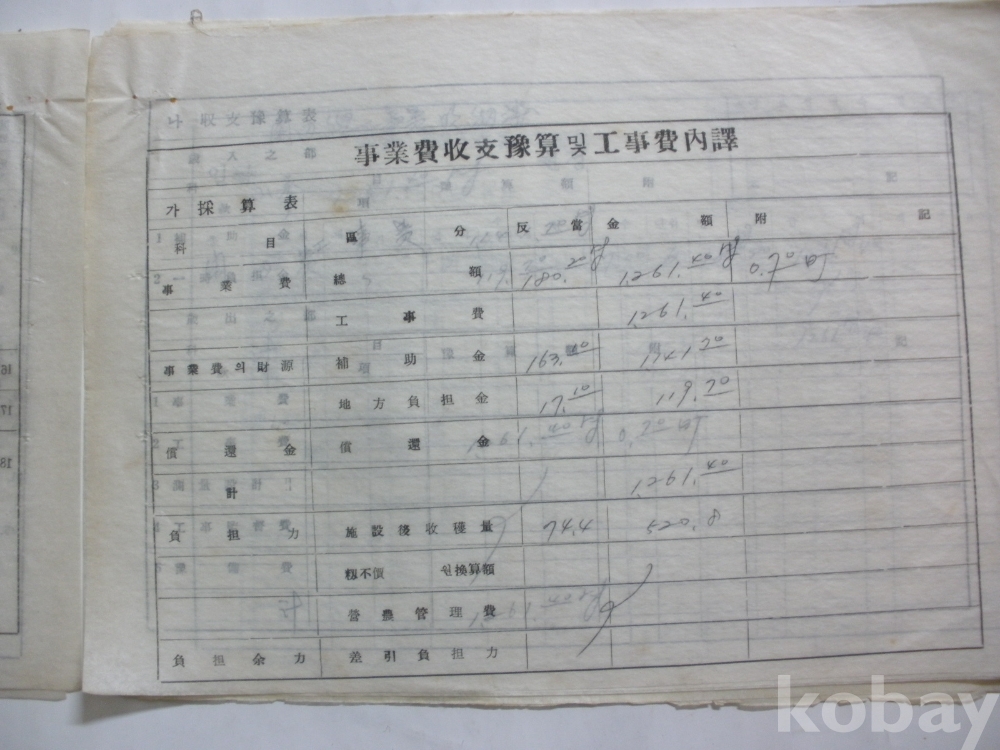 事業費收支豫算및工事費內譯
가 採算表
科目 區分 反當金額 附記
事業費 總額 180.20 1,261.40 0.70町
工事費 1,261.40
事業費의財源 補助金 163.10 1,141.70
地方負担金 17.10 119.70
償還金 償還金
計 1,261.40
負担力 施設後收穫量 74.4 520.8
籾不價 원換算額
營農管理費
負担余力 差引負担力
나 收支豫算表
16
17
18
kobay